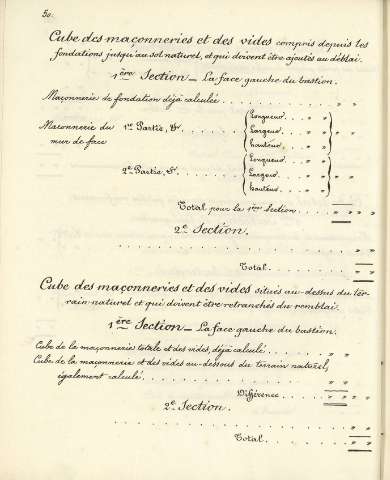 50.
Cube des maçonneries et des vides compris depuis les
fondations jusqu'au sol naturel, et qui doivent être ajoutés au déblai.
1ère Section — La face gauche du bastion.
Maçonneries de fondation déjà calculée . . . . . . . . . . . . . . . . . . . „ „
Maçonnerie du 1re Partie, longueur . . . „ „
largeur . . . „ „ „ „
mur de face hauteur . . . „ „
2e Partie, longueur . . . „ „
largeur . . . „ „ „ „
hauteur . . . „ „
Total pour la 1ère Section . . . . „ „ „
2e Section.
. . . . . . . . . . . . . . . . . . . . . . . „ „
Total . . . . . . . . . „ „ „
Cube des maçonneries et des vides situés au-dessus du ter-
rain naturel et qui doivent être retranchés du remblai.
1ère Section — La face gauche du bastion.
Cube de la maçonnerie totale et des vides, déjà calculé . . . . . . . . . „ „
Cube de la maçonnerie et des vides au-dessous du terrain naturel,
également calculé . . . . . . . . . . . . . . . . . . . . . „ „
Différence . . . . „ „ „
2e Section.
. . . . . . . . . . . . . . . . . . . . . . . „ „
Total . . . . . . . . . „ „ „